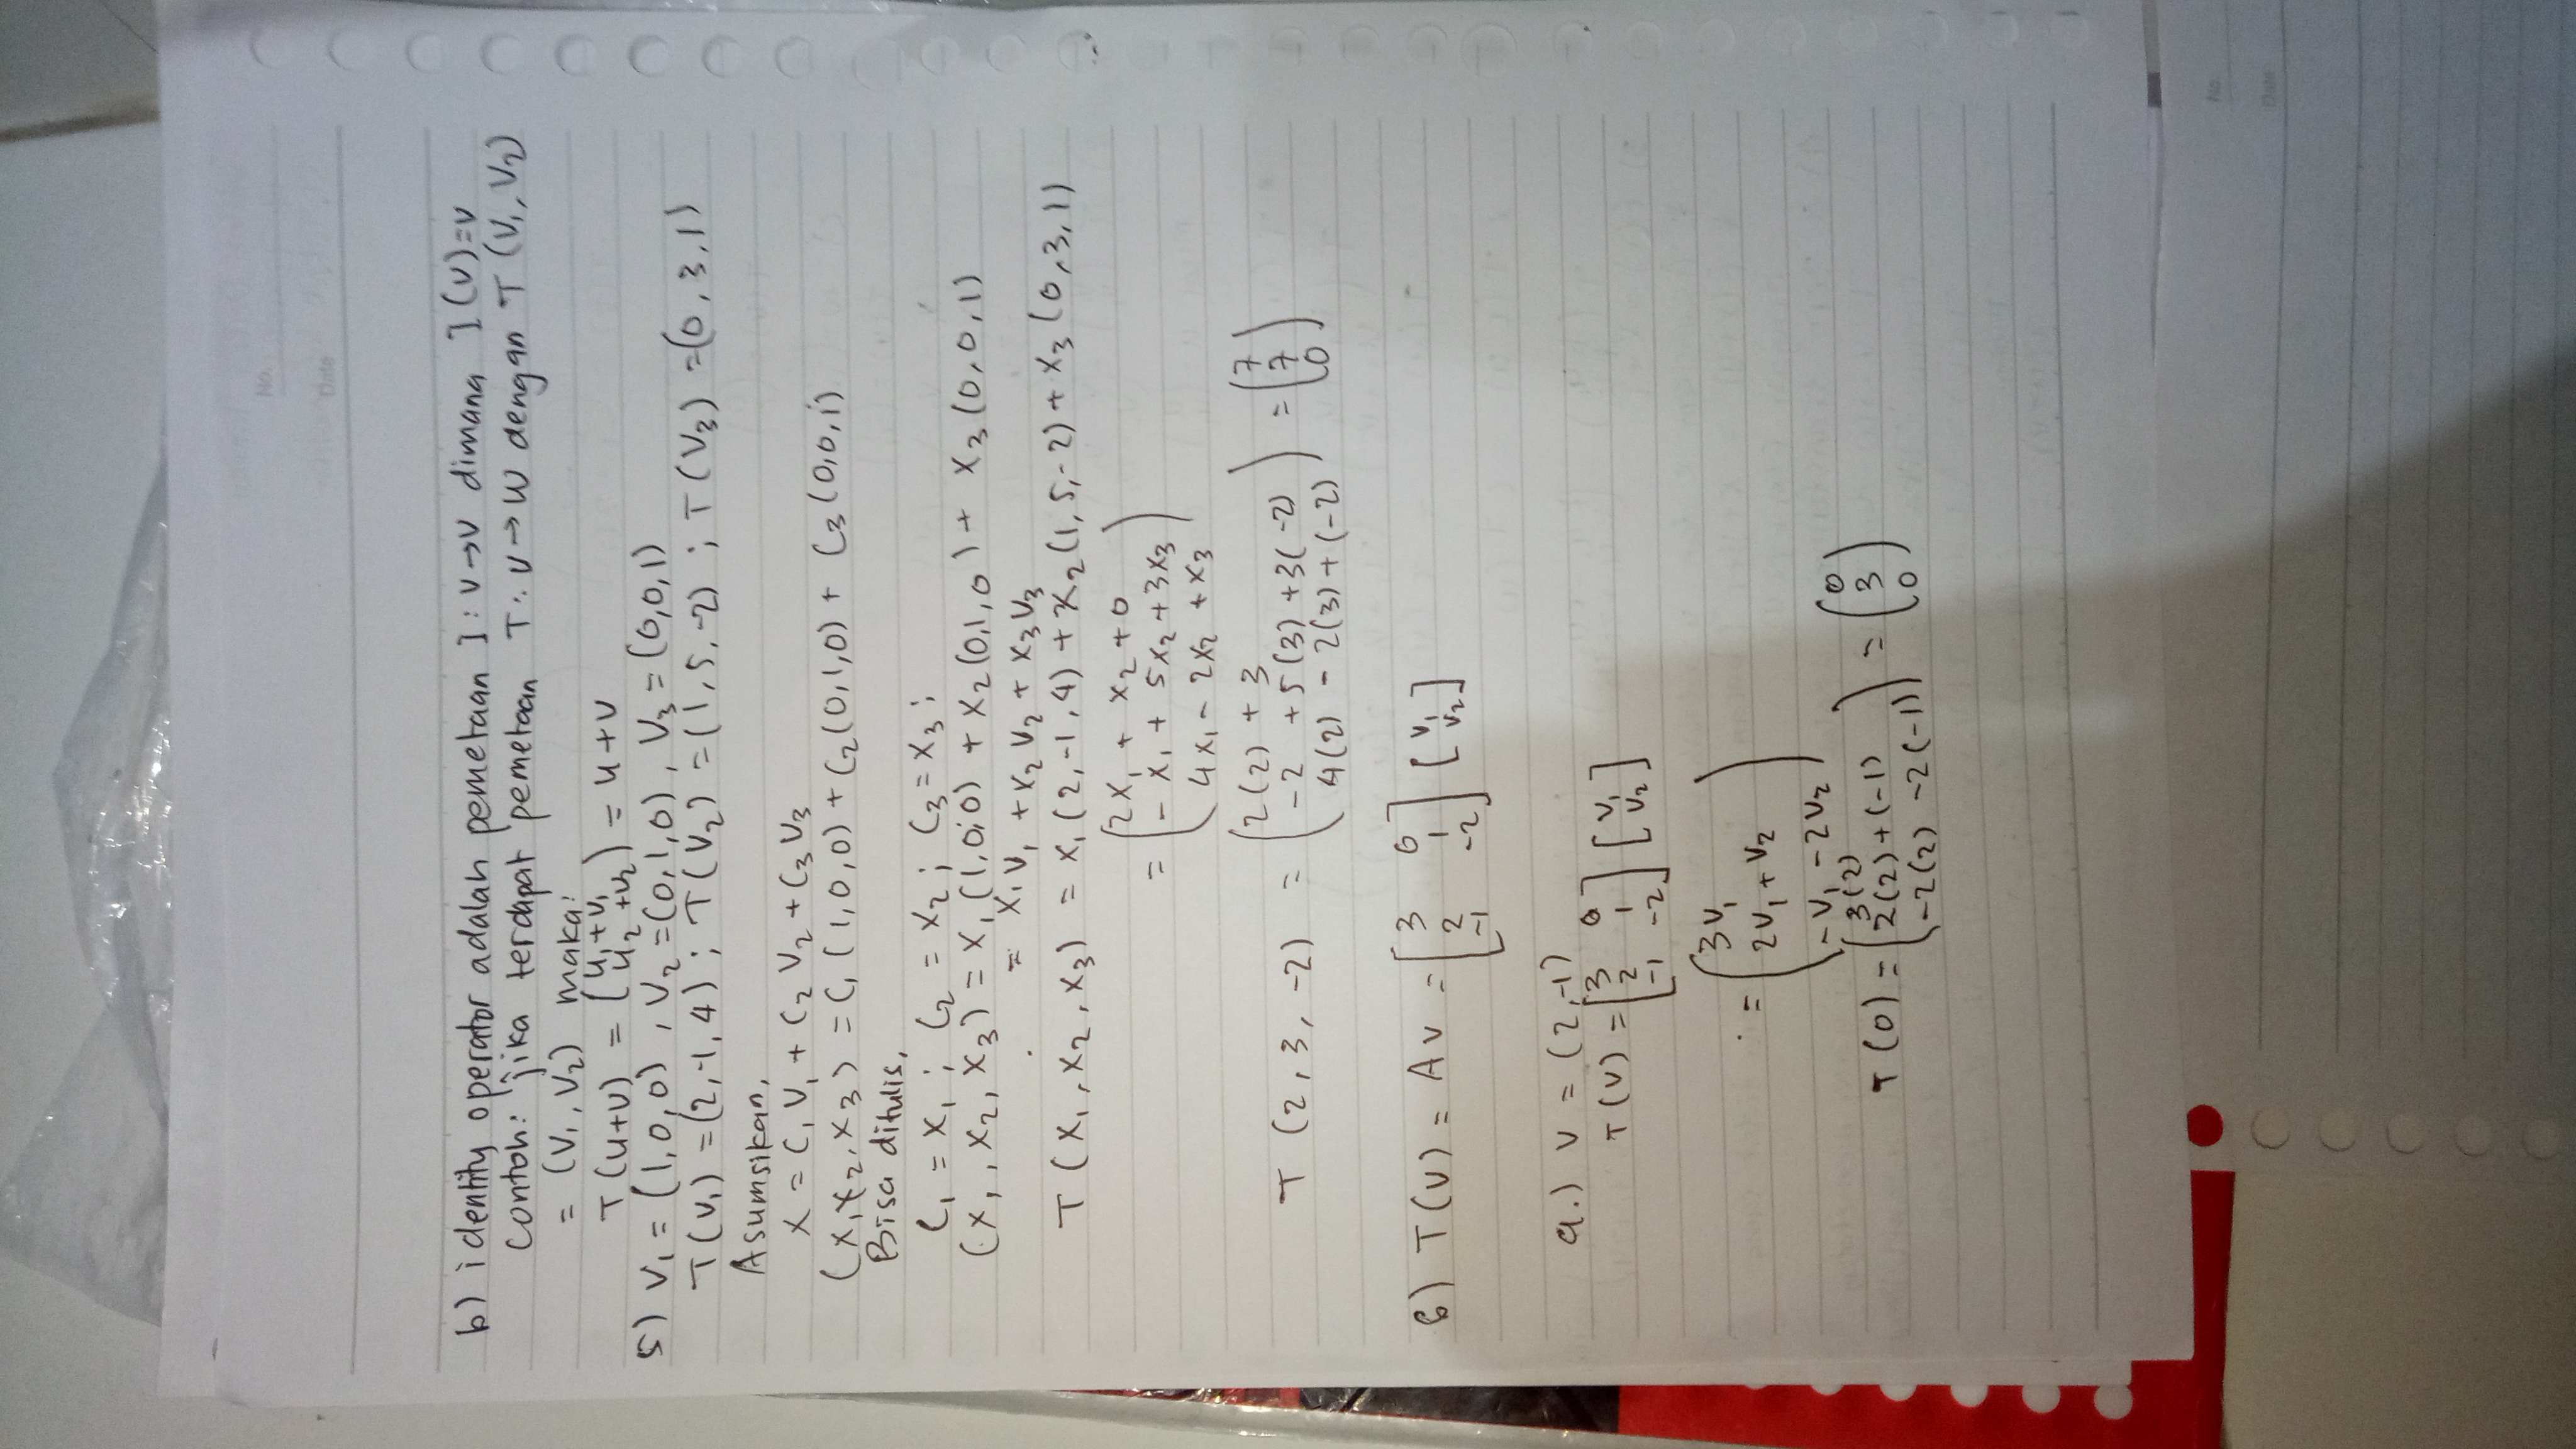 No.
Date
b) identity operator adalah pemetaan I : V → V dimana I (V) = V
Contoh: jika terdapat pemetaan T : V → W dengan T (V₁, V₂)
= (V₁, V₂) maka:
T (u+v) = (u₁+v₁
u₂+v₂) = u+v
5) V₁ = (1,0,0), V₂ = (0,1,0), V₃ = (0,0,1)
T(V₁) = (2,-1,4) ; T(V₂) = (1,5,-2) ; T(V₃) = (0,3,1)
Asumsikan,
X = C₁ V₁ + C₂ V₂ + C₃ V₃
(X₁,X₂,X₃) = C₁ (1,0,0) + C₂ (0,1,0) + C₃ (0,0,1)
Bisa ditulis,
C₁ = X₁ ; C₂ = X₂ ; C₃ = X₃ ;
(X₁, X₂, X₃) = X₁ (1,0,0) + X₂ (0,1,0) + X₃ (0,0,1)
= X₁V₁ + X₂V₂ + X₃V₃
T (X₁, X₂, X₃) = X₁ (2,-1,4) + X₂ (1,5,-2) + X₃ (0,3,1)
= (2X₁ + X₂ + 0
- X₁ + 5X₂ + 3X₃
4X₁ - 2X₂ + X₃)
T (2, 3, -2) = (2(2) + 3
-2 + 5(3) + 3(-2)
4(2) - 2(3) + (-2)) = (7
7
0)
6) T(V) = AV = [3 0
2 1
-1 -2] [V₁
V₂]
a.) V = (2,-1)
T(V) = [3 0
2 1
-1 -2] [V₁
V₂]
= (3V₁
2V₁ + V₂
-V₁ - 2V₂)
T(0) = (3(2)
2(2) + (-1)
-2(2) -2(-1)) = (0
3
0)
No.
Date